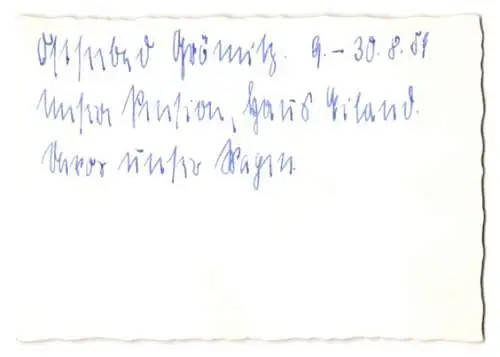 Ostseebad Grömitz. 9.-30.8.59
Unsere Pension, Haus Eiland.
Davor unser Wagen